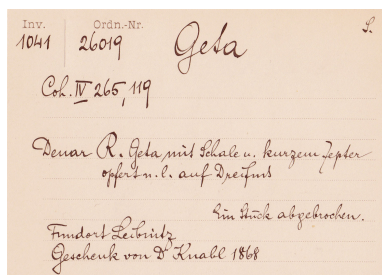 Inv. Ordn.-Nr. S.
1041 26019 Geta
Coh. IV 265,119
Denar R. Geta mit Schale u. kurzem Zepter
opfert n. l. auf Dreifuß
Ein Stück abgebrochen.
Fundort Leibnitz
Geschenk von Dr Knabl 1868